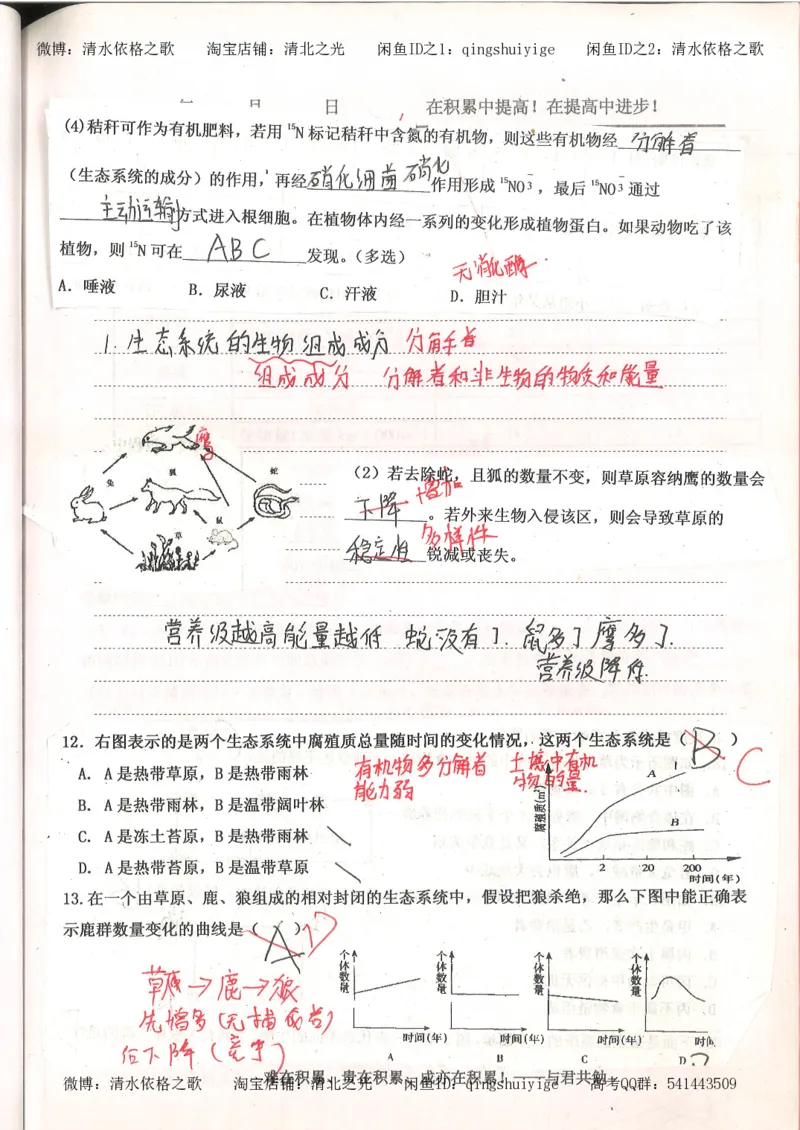 微博：清水依格之歌 淘宝店铺：清北之光 闲鱼ID之1：qingshuiyige 闲鱼ID之2：清水依格之歌
日 在积累中提高！在提高中进步！
(4)秸秆可作为有机肥料，若用¹⁵N标记秸秆中含氮的有机物，则这些有机物经 分解者
（生态系统的成分）的作用，再经 硝化细菌 硝化 作用形成 ¹⁵NO₃⁻，最后 ¹⁵NO₃⁻通过
主动运输 方式进入根细胞。在植物体内经一系列的变化形成植物蛋白。如果动物吃了该
植物，则¹⁵N可在 ABC 发现。（多选）
无消化酶
A．唾液 B．尿液 C．汗液 D．胆汁
1.生态系统的生物组成成分 分解者
组成成分 分解者和非生物的物质和能量
鹰
兔 狐 蛇
鼠
草
（2）若去除蛇，且狐的数量不变，则草原容纳鹰的数量会
下降 增加 。若外来生物入侵该区，则会导致草原的
稳定性 多样性 锐减或丧失。
营养级越高能量越低 蛇没有了.鼠多了鹰多了.
营养级降低.
12．右图表示的是两个生态系统中腐殖质总量随时间的变化情况，这两个生态系统是（ B ） C
A．A是热带草原，B是热带雨林
有机物多分解者
能力弱
土壤中有机
物的量.
B．A是热带雨林，B是温带阔叶林
C．A是冻土苔原，B是热带雨林
D．A是热带苔原，B是温带草原
腐殖质(m³)
A
B
2 20 200
时间(年)
13.在一个由草原、鹿、狼组成的相对封闭的生态系统中，假设把狼杀绝，那么下图中能正确表
示鹿群数量变化的曲线是（ A ） D
草原→鹿→狼
先增多(无捕食者)
后下降(竞争)
个体数量 个体数量 个体数量 个体数量
时间(年) 时间(年) 时间(年) 时间
A B C D
难在积累，贵在积累，成亦在积累！——与君共勉
微博：清水依格之歌 淘宝店铺：清北之光 闲鱼ID：qingshuiyige 高考QQ群：541443509